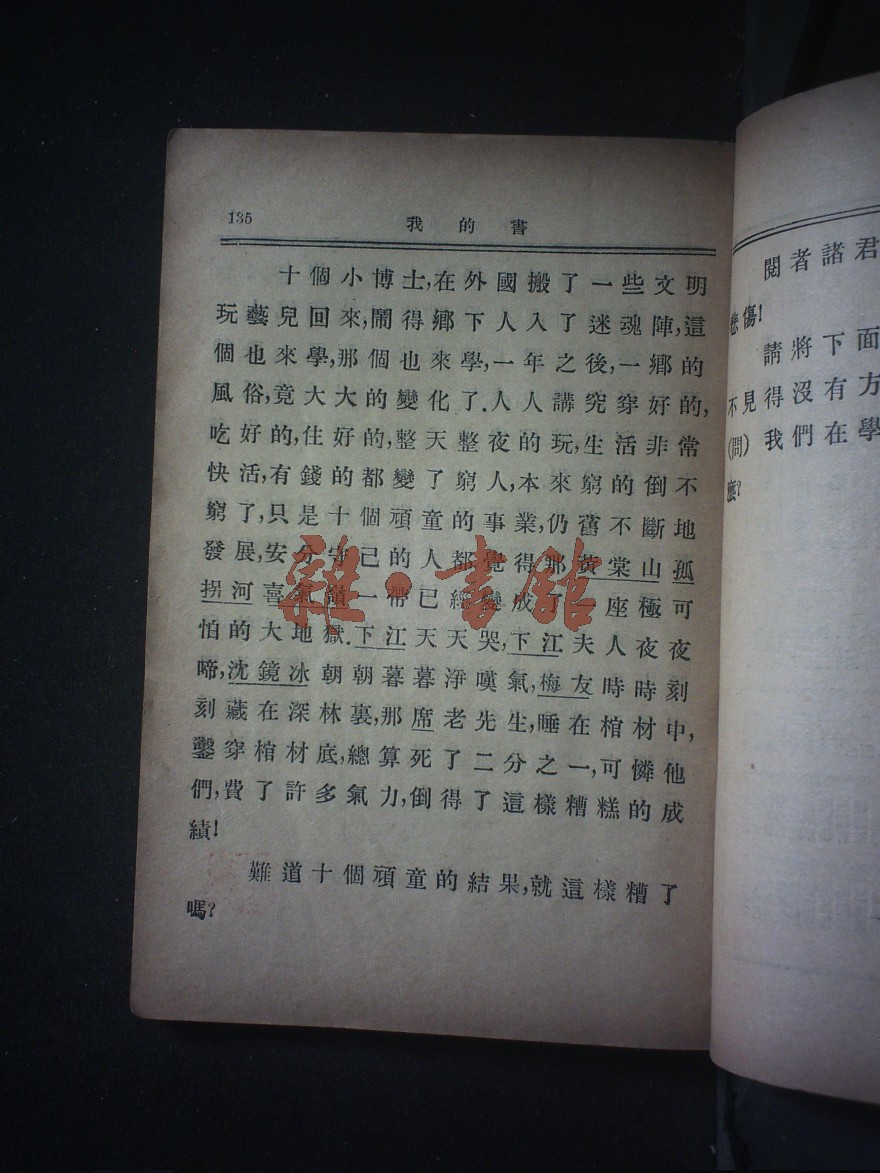 135
我的書
十個小博士,在外國搬了一些文明
玩藝兒回來,鬧得鄉下人入了迷魂陣,這
個也來學,那個也來學,一年之後,一鄉的
風俗,竟大大的變化了.人人講究穿好的,
吃好的,住好的,整天整夜的玩,生活非常
快活,有錢的都變了窮人,本來窮的倒不
窮了,只是十個頑童的事業,仍舊不斷地
發展,安分守己的人都覺得那黃棠山孤
拐河喜氣嶺一帶已經變成了一座極可
怕的大地獄.下江天天哭,下江夫人夜夜
啼,沈鏡冰朝朝暮暮淨嘆氣,梅友時時刻
刻藏在深林裏,那席老先生,睡在棺材中,
鑿穿棺材底,總算死了二分之一,可憐他
們,費了許多氣力,倒得了這樣糟糕的成
績!
難道十個頑童的結果,就這樣糟了
嗎?
雜·書館
閱者諸君
悲傷!
請將下面
不見得沒有方
(問)我們在學
麽?